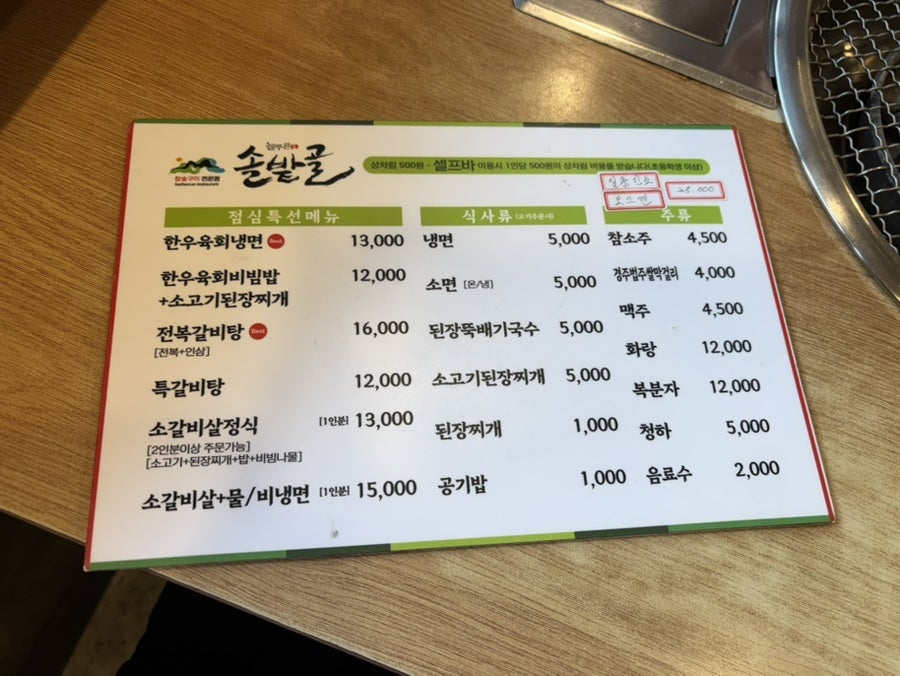 늘푸른
솔밭골
참숯구이 전문점
barbecue restaurant
상차림 500원 - 셀프바 이용시 1인당 500원의 상차림 비용을 받습니다(초등학생 이상)
일품진로
오크젠
25.000
점심특선메뉴
한우육회냉면 Best 13,000
한우육회비빔밥 12,000
+소고기된장찌개
전복갈비탕 Best 16,000
[전복+인삼]
특갈비탕 12,000
소갈비살정식 [1인분] 13,000
[2인분이상 주문가능]
[소고기+된장찌개+밥+비빔나물]
소갈비살+물/비냉면 [1인분] 15,000
식사류 (고기주문시)
냉면 5,000
소면 [온/냉] 5,000
된장뚝배기국수 5,000
소고기된장찌개 5,000
된장찌개 1,000
공기밥 1,000
주류
참소주 4,500
경주법주쌀막걸리 4,000
맥주 4,500
화랑 12,000
복분자 12,000
청하 5,000
음료수 2,000